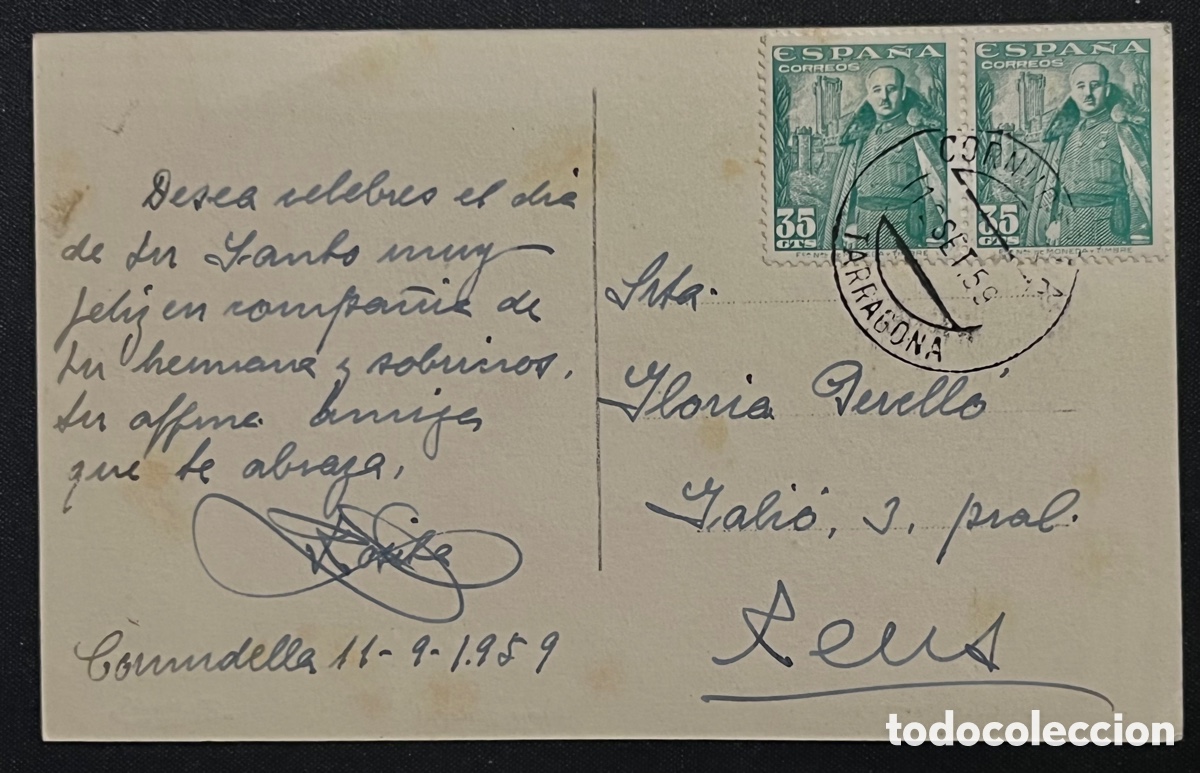 Desea celebres el dia
de tu Santo muy
feliz en compañia de
tu hermana y sobrinos.
tu affma amiga
que te abraza,
Cornudella 11-9-1959
ESPAÑA
CORREOS
35
CTS
ESPAÑA
CORREOS
35
CTS
11 SET. 59
TARRAGONA
Srta.
Gloria Perelló
Galió, 3, pral.
Reus
todocoleccion